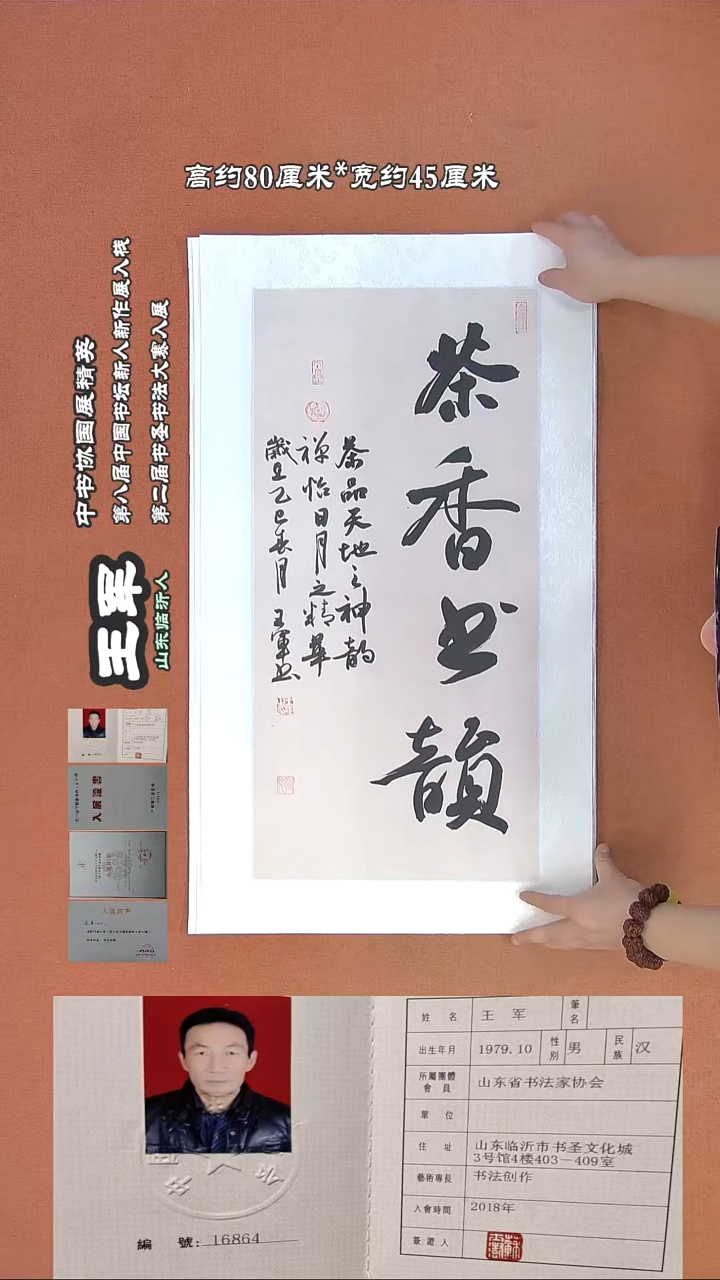 高约80厘米*宽约45厘米
中书协国展精英
第八届中国书坛新人新作展入展
第二届书圣书法大赛入展
王军
山东临沂人
茶香书韻
茶品天地之神韵
禅怡日月之精華
歲且乙巳春月 王軍书
入展證書
姓 名 王 军 筆名
出生年月 1979.10 性別 男 民族 汉
所屬團體會員 山东省书法家协会
單 位
住 址 山东临沂市书圣文化城
3号馆4楼403－409室
藝術專長 书法创作
入會時間 2018年
簽證人
編 號: 16864